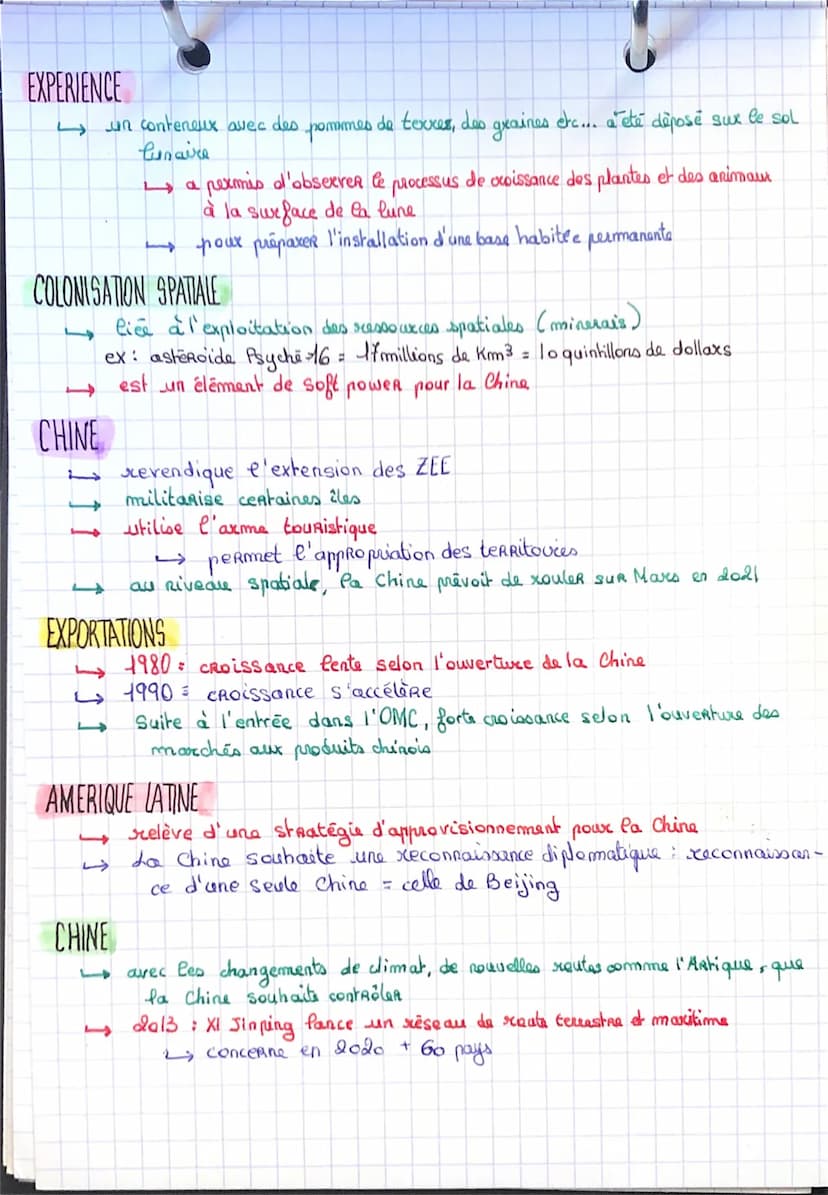 EXPERIENCE
↳ un conteneur avec des pommes de terres, des graines etc... a été déposé sur le sol
lunaire
↳ a permis d'observer le processus de croissance des plantes et des animaux
à la surface de la lune
↳ pour préparer l'installation d'une base habitée permanente
COLONISATION SPATIALE
↳ liée à l'exploitation des ressources spatiales (minerais)
ex : astéroïde Psyché 16 = 17 millions de Km³ = 10 quintillons de dollars
↳ est un élément de soft power pour la Chine
CHINE
↳ revendique l'extension des ZEE
↳ militarise certaines îles
↳ utilise l'arme touristique
↳ permet l'appropriation des territoires
↳ au niveau spatiale, la Chine prévoit de rouler sur Mars en 2021
EXPORTATIONS
↳ 1980 : croissance lente selon l'ouverture de la Chine
↳ 1990 : croissance s'accélère
↳ Suite à l'entrée dans l'OMC, forte croissance selon l'ouverture des
marchés aux produits chinois
AMERIQUE LATINE
↳ relève d'une stratégie d'approvisionnement pour la Chine
↳ La Chine souhaite une reconnaissance diplomatique : reconnaissan-
ce d'une seule Chine = celle de Beijing
CHINE
↳ avec les changements de climat, de nouvelles routes comme l'Artique, que
la Chine souhaite contrôler
↳ 2013 : XI Jinping lance un réseau de route terrestre et maritime
↳ concerne en 2020 + 60 pays